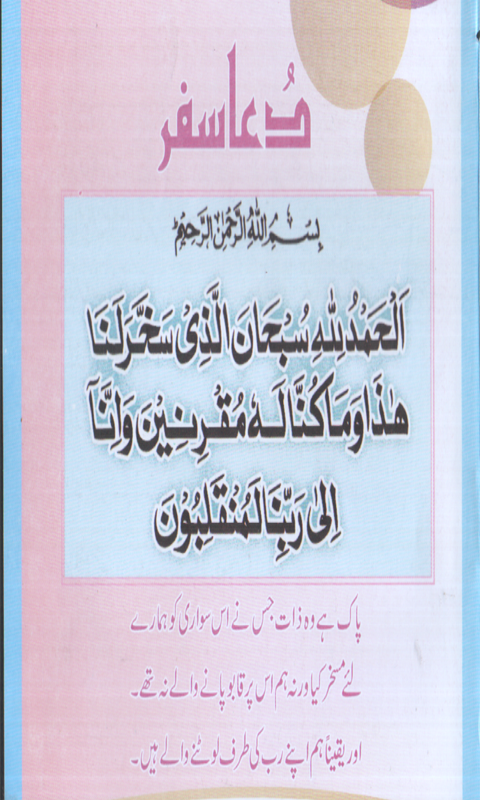 دُعا سفر
بِسْمِ اللهِ الرَّحْمٰنِ الرَّحِيْمِ
اَلْحَمْدُ لِلّٰهِ سُبْحَانَ الَّذِىْ سَخَّرَلَنَا
هٰذَا وَمَا كُنَّا لَهٗ مُقْرِنِيْنَ وَاِنَّآ
اِلٰى رَبِّنَا لَمُنْقَلِبُوْنَ
پاک ہے وہ ذات جس نے اس سواری کو ہمارے
لئے مسخر کیا ورنہ ہم اس پر قابو پانے والے نہ تھے۔
اور یقیناً ہم اپنے رب کی طرف لوٹنے والے ہیں۔